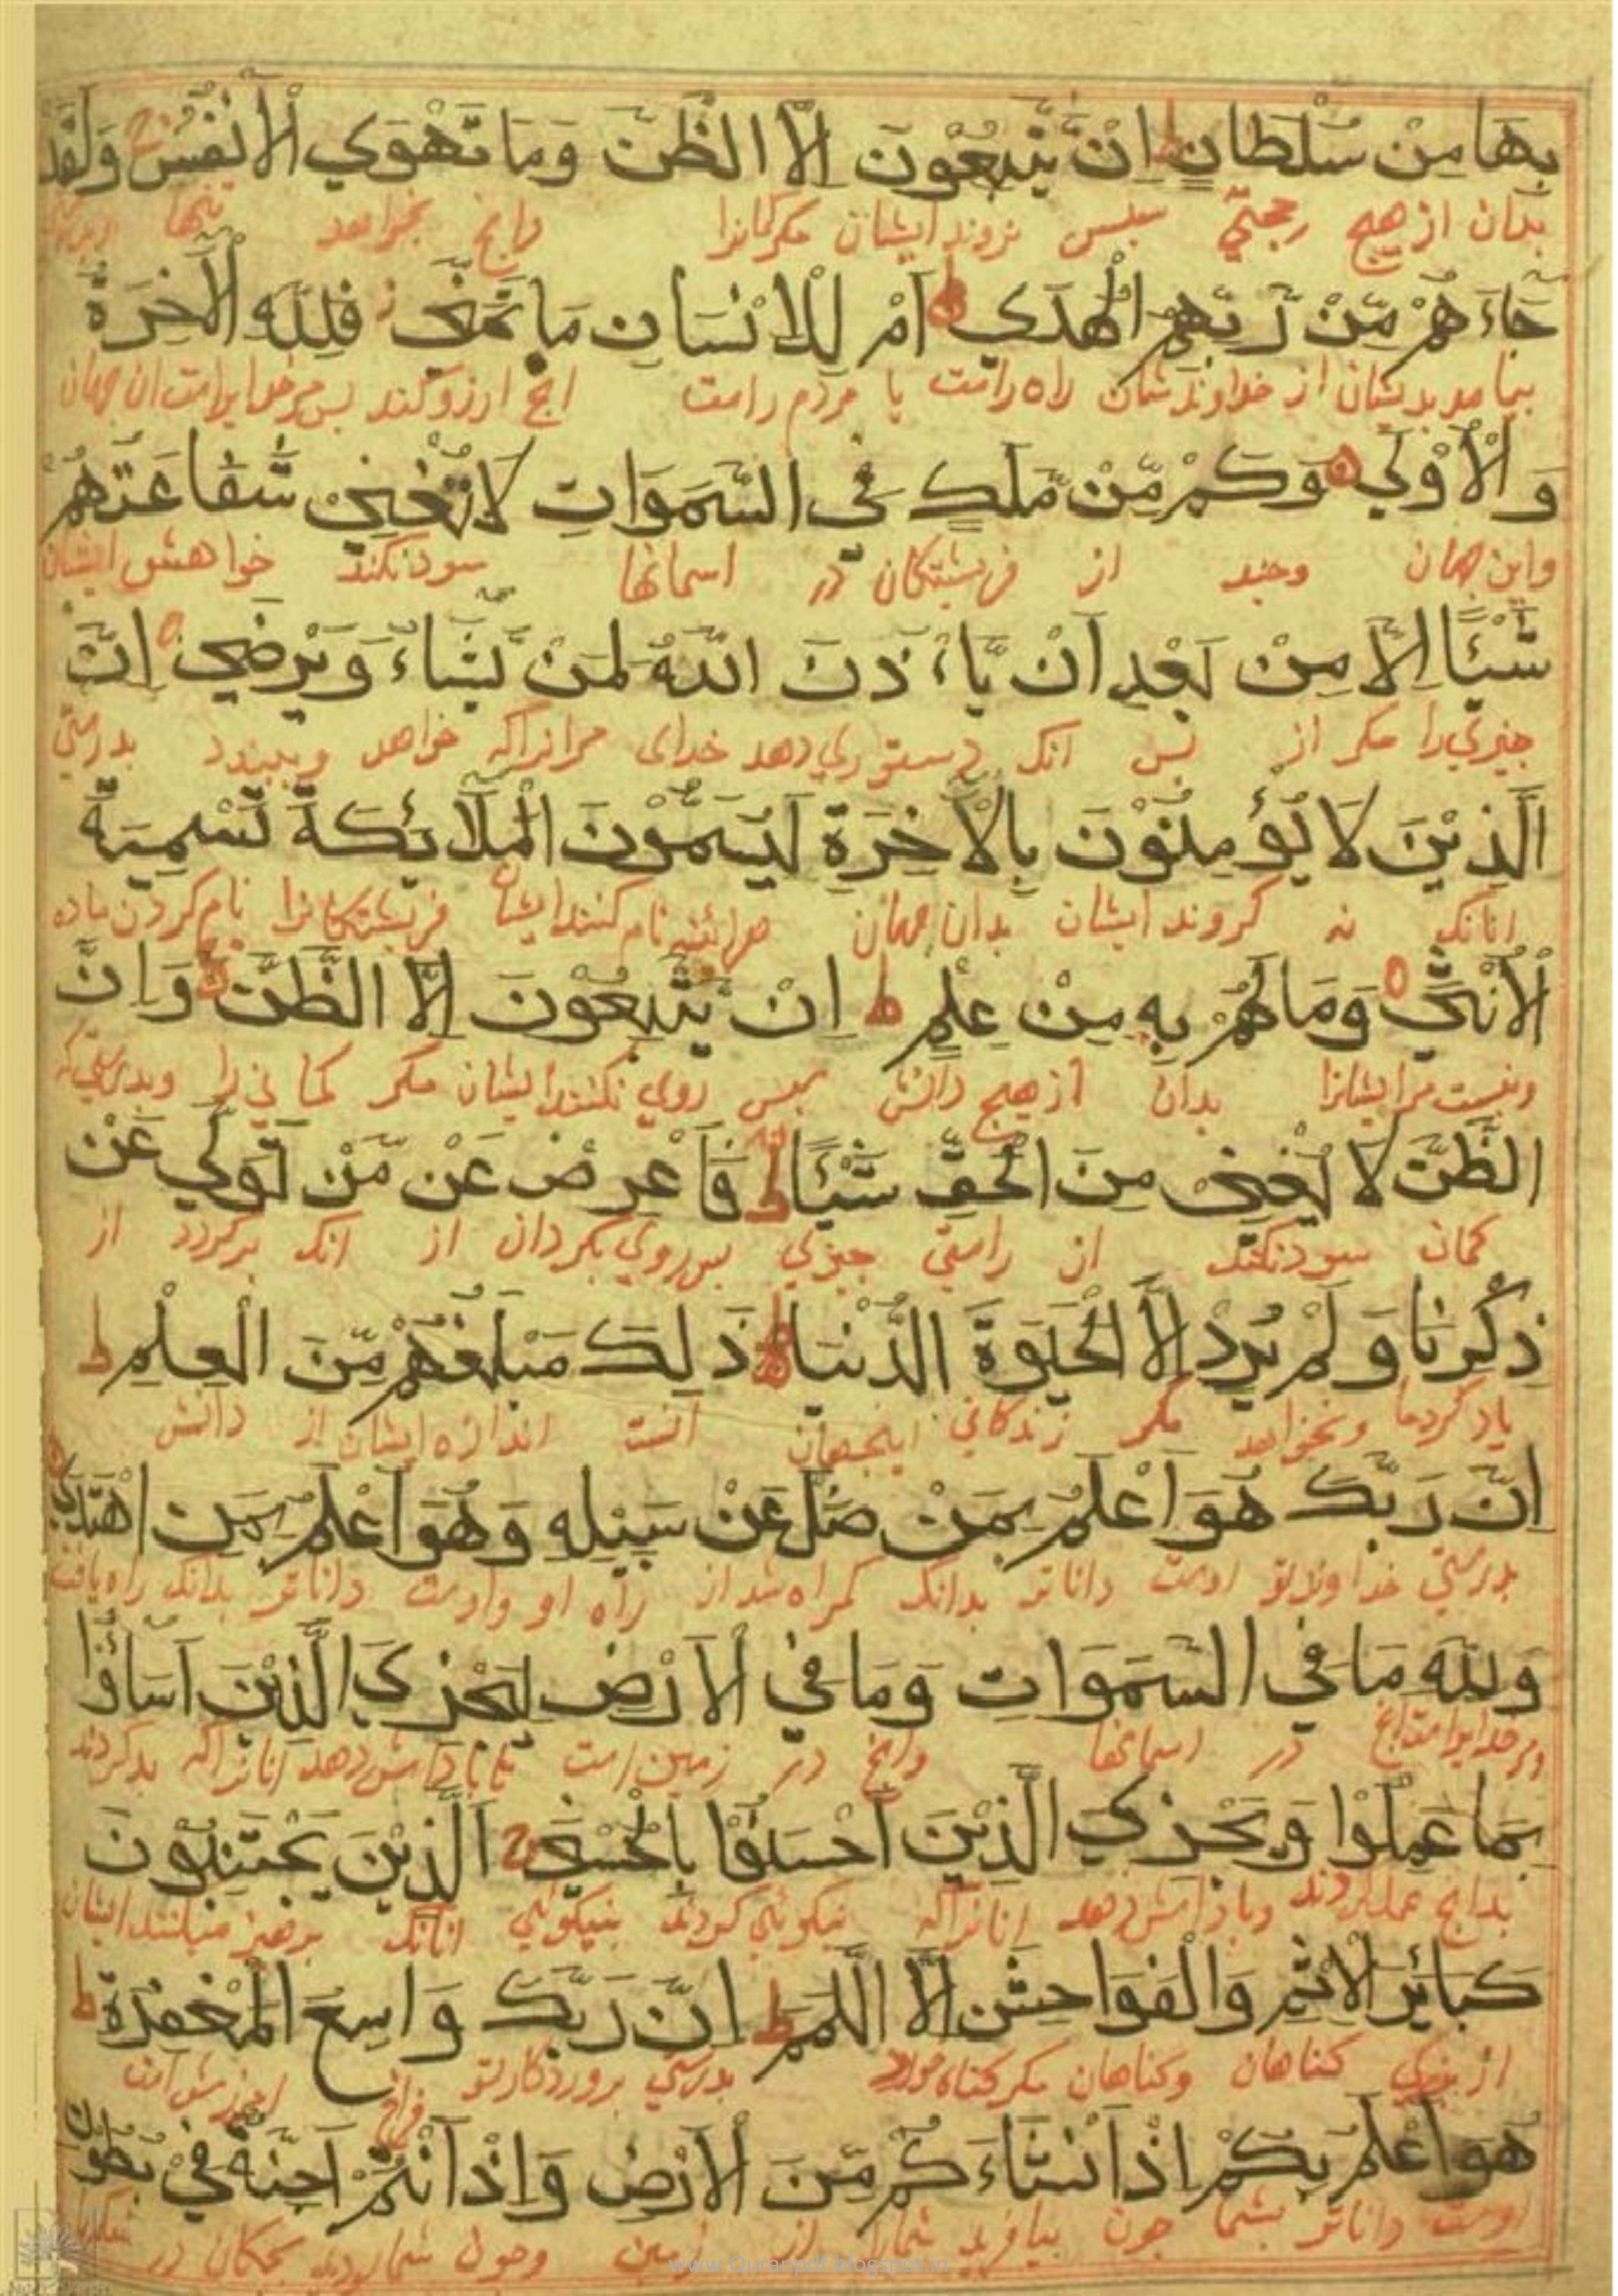 بِهَا مِنْ سُلْطَانٍ ط اِنْ يَتَّبِعُونَ اِلَّا الظَّنَّ وَمَا تَهْوَي الْاَنْفُسُ ج وَلَقَدْ
بدان از هیچ حجتی نروند ایشان مکر کمانرا وانج بخواهد تنها
جَاءَهُمْ مِّنْ رَبِّهِمُ الْهُدَي ط اَمْ لِلْاِنْسَانِ مَا تَمَنَّي ز فَلِلّٰهِ الْاٰخِرَةُ
بیامد بدیشان از خداوندشان راه راست یا مردم راست انج ارزو کند بس مر خدایراست ان جهان
وَالْاُوْلٰي ه وَكَمْ مِّنْ مَّلَكٍ فِي السَّمَوَاتِ لَا تُغْنِيْ شَفَاعَتُهُمْ
واین جهان وجند از فریشتکان در اسمانها سود نکند خواهش ایشان
شَيْـًٔا اِلَّا مِنْ بَعْدِ اَنْ يَّاْذَنَ اللّٰهُ لِمَنْ يَّشَاءُ وَيَرْضٰي ه اِنَّ
جیزی را مکر از بس انک دستوری دهد خدای مرانراکه خواهد وبسندد بدرستی
الَّذِيْنَ لَا يُؤْمِنُوْنَ بِالْاٰخِرَةِ لَيُسَمُّوْنَ الْمَلَائِكَةَ تَسْمِيَةَ
انانک نه کروند ایشان بدان جهان هراینه نام کنند ایشان فریشتکانرا نام کردن ماده
الْاُنْثٰي ه وَمَا لَهُمْ بِهِ مِنْ عِلْمٍ ط اِنْ يَّتَّبِعُوْنَ اِلَّا الظَّنَّ ج وَاِنَّ
ونیست مر ایشانرا بدان از هیچ دانش بس روی نکنند ایشان مکر کمانی را وبدرستی که
الظَّنَّ لَا يُغْنِيْ مِنَ الْحَقِّ شَيْـًٔا ط فَاَعْرِضْ عَنْ مَّنْ تَوَلّٰي عَنْ
کمان سود نکند از راستی جیزی بس روی بکردان از انک برکردد از
ذِكْرِنَا وَلَمْ يُرِدْ اِلَّا الْحَيٰوةَ الدُّنْيَا ط ذٰلِكَ مَبْلَغُهُمْ مِّنَ الْعِلْمِ ط
یاد کرد ما ونخواهد مکر زندکانی اینجهان انست اندازه ایشان از دانش
اِنَّ رَبَّكَ هُوَ اَعْلَمُ بِمَنْ ضَلَّ عَنْ سَبِيْلِهِ وَهُوَ اَعْلَمُ بِمَنِ اهْتَدٰي ه
بدرستی خداوند تو اوست داناتر بدانک کمراه شد از راه او واوست داناتر بدانک راه یافت
وَلِلّٰهِ مَا فِي السَّمَوَاتِ وَمَا فِي الْاَرْضِ لِيَجْزِيَ الَّذِيْنَ اَسَاؤُا
ومر خدایراست انج در اسمانها وانج در زمین است تا باداش دهد انانراکه بد کردند
بِمَا عَمِلُوْا وَيَجْزِيَ الَّذِيْنَ اَحْسَنُوْا بِالْحُسْنٰي ج اَلَّذِيْنَ يَجْتَنِبُوْنَ
بدانج عمل کردند وباداش دهد انانراکه نیکوئی کردند بنیکوئی انانک برهیز میکنند ایشان
كَبَائِرَ الْاِثْمِ وَالْفَوَاحِشَ اِلَّا اللَّمَمَ ط اِنَّ رَبَّكَ وَاسِعُ الْمَغْفِرَةِ ط
از بزرکی کناهان وکناهان مکر کناه خورد بدرستی بروردکار تو فراخ امرزش است
هُوَ اَعْلَمُ بِكُمْ اِذْ اَنْشَاَكُمْ مِّنَ الْاَرْضِ وَاِذْ اَنْتُمْ اَجِنَّةٌ فِيْ بُطُوْنِ
اوست داناتر بشما جون بیافرید شمارا از زمین وجون شما بودید بجکان در
www.Quranpdf.blogspot.in